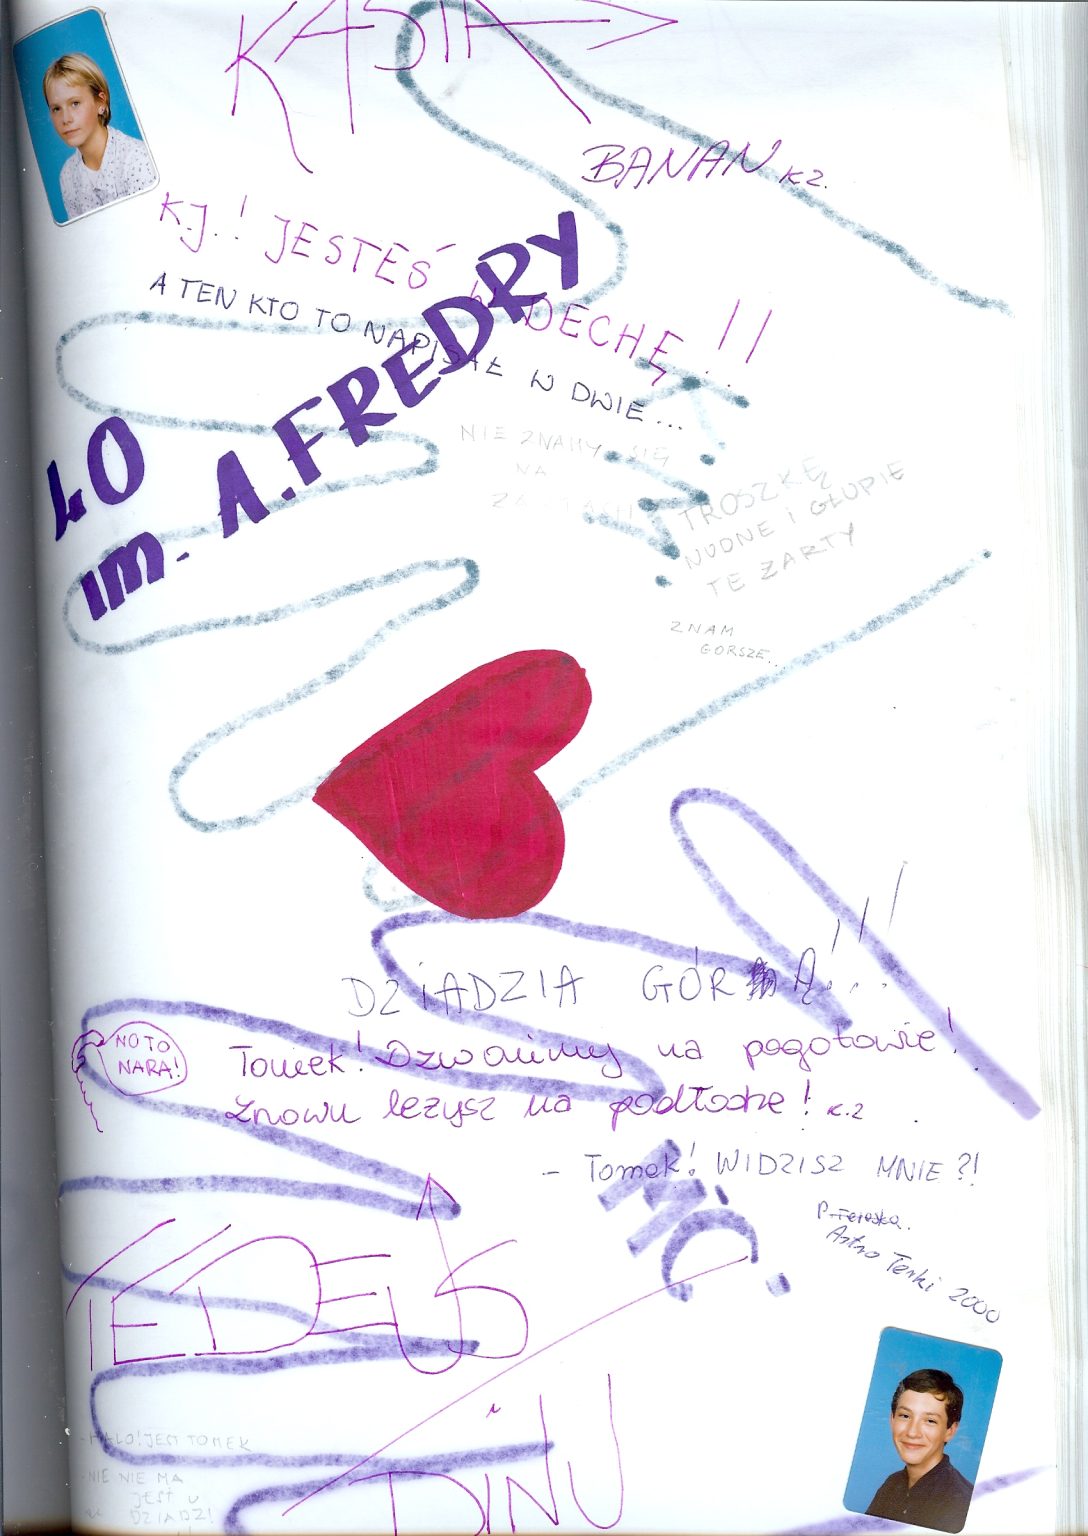 KASIA
BANAN K2.
K.J.! JESTEŚ W DECHĘ!!
A TEN KTO TO NAPISAŁ W DWIE...
LO
IM. A. FREDRY
NIE ZNAMY SIĘ
NA
TROSZKĘ
NUDNE I GŁUPIE
TE ŻARTY
ZNAM
GORSZE...
DZIADZIA GÓRĄ!!!
NO TO
NARA!
Tomek! Dzwonimy na pogotowie!
Znowu leżysz na podłodze! K.2
- Tomek! WIDZISZ MNIE?!
MC.
P. Fereska.
Astro Terki 2000
TEDEUS
i
DINU
- HALO! JEM TOMEK
- NIE NIE MA
JEST U
DZIADZI